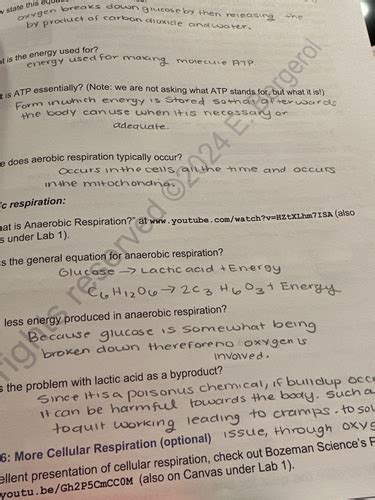 w state this equa
oxygen breaks down glucose by then releasing the
by product of carbon dioxide and water.
at is the energy used for?
energy used for making molecule ATP
t is ATP essentially? (Note: we are not asking what ATP stands for, but what it is!)
Form in which energy is stored so that afterwards
the body can use when it is necessary or
adequate.
e does aerobic respiration typically occur?
Occurs in the cells all the time and occurs
in the mitochondria.
ic respiration:
hat is Anaerobic Respiration?" at www.youtube.com/watch?v=HZtXLhm7ISA (also
s under Lab 1).
s the general equation for anaerobic respiration?
Glucose → Lactic acid + Energy
C6H12O6 → 2C3H6O3 + Energy
less energy produced in anaerobic respiration?
Because glucose is somewhat being
broken down therefore no oxygen is
involved.
s the problem with lactic acid as a byproduct?
Since it is a poisonus chemical, if buildup occ
it can be harmful towards the body. Such a
to quit working leading to cramps. to sol
issue, through oxy
6: More Cellular Respiration (optional)
ellent presentation of cellular respiration, check out Bozeman Science's F
youtu.be/Gh2P5CmCC0M (also on Canvas under Lab 1).
rights reserved ©2024 E. Bergerol